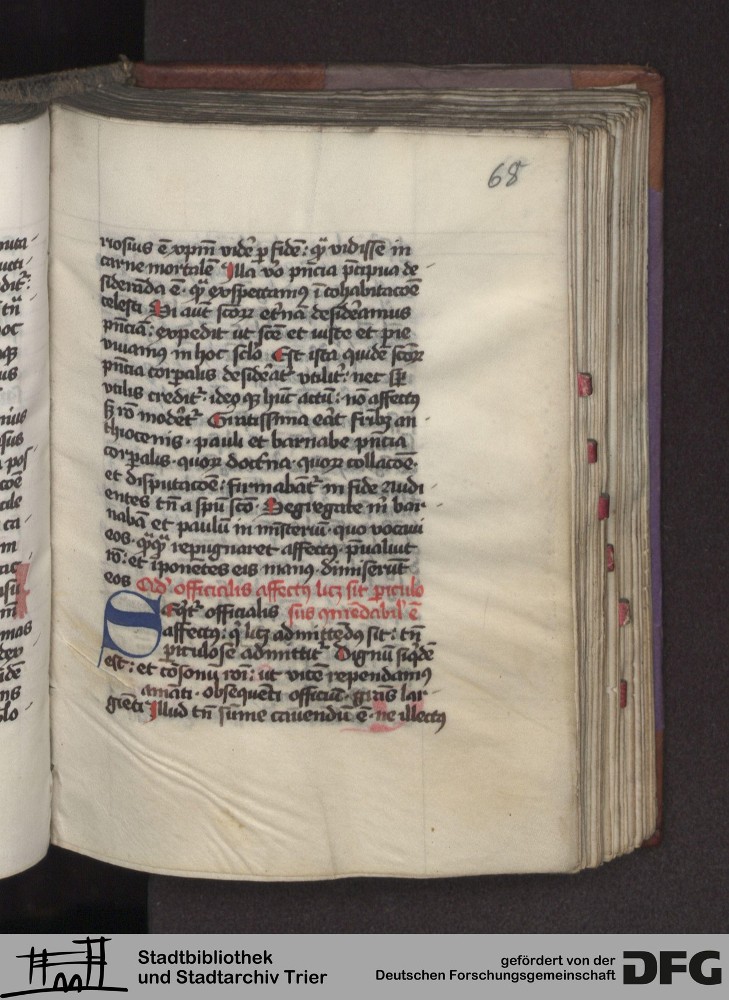 68
riosius ē xp̄m vidē p fidē: qͣ vidisse in
carne mortalē Illa vo pn̄cia p̄cipua de
siderāda ē. qͣ exspectamꝰ ī cohabitacōe
celesti Si aut̄ scōꝝ et̄nā desideramus
pn̄ciā: expedit ut scē et iuste et pie
viuamꝰ in hoc sclō Est ista quidē scōꝝ
pn̄tia corꝑalis desideāt᷑ vtilit᷑: nec sꝑ
vtilis credit᷑: ideo qꝫ huiꝰ actū: nō affectꝰ
sꝫ rō modet᷑ Gratissima eāt frībꝫ an
thiocenis. pauli et barnabe pn̄tia
corꝑalis. quoꝝ doctͥna. quoꝝ collacōe.
et disputacōe: firmabāt᷑ in fide Audi
entes tn̄ a spū scō Segregate m̄ bar
nabā et paulū in misteriū. quo vocaui
eos. qͣqͣ repugnaret affectꝰ. p̄valuit
rō: et īponētes eis manꝰ. dimiserūt
eos Qd' officialis affectꝰ licꝫ sit ꝑiculo
Seqt᷑ officialis sus amēdabil' ē
affectꝰ: qͥ licꝫ admittēdꝰ sit: tn̄
piculose admittit᷑ Dignū siqdē
est: et cōsonū rōni: ut vicē rependamꝰ
amāti. obsequēti officiū. grās lar
giēti Illud tn̄ sūme cavendū ē. ne illectꝰ
Stadtbibliothek
und Stadtarchiv Trier
gefördert von der
Deutschen Forschungsgemeinschaft
DFG